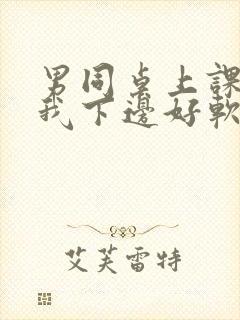 男同桌上課
我下邊好軟
艾芙雷特